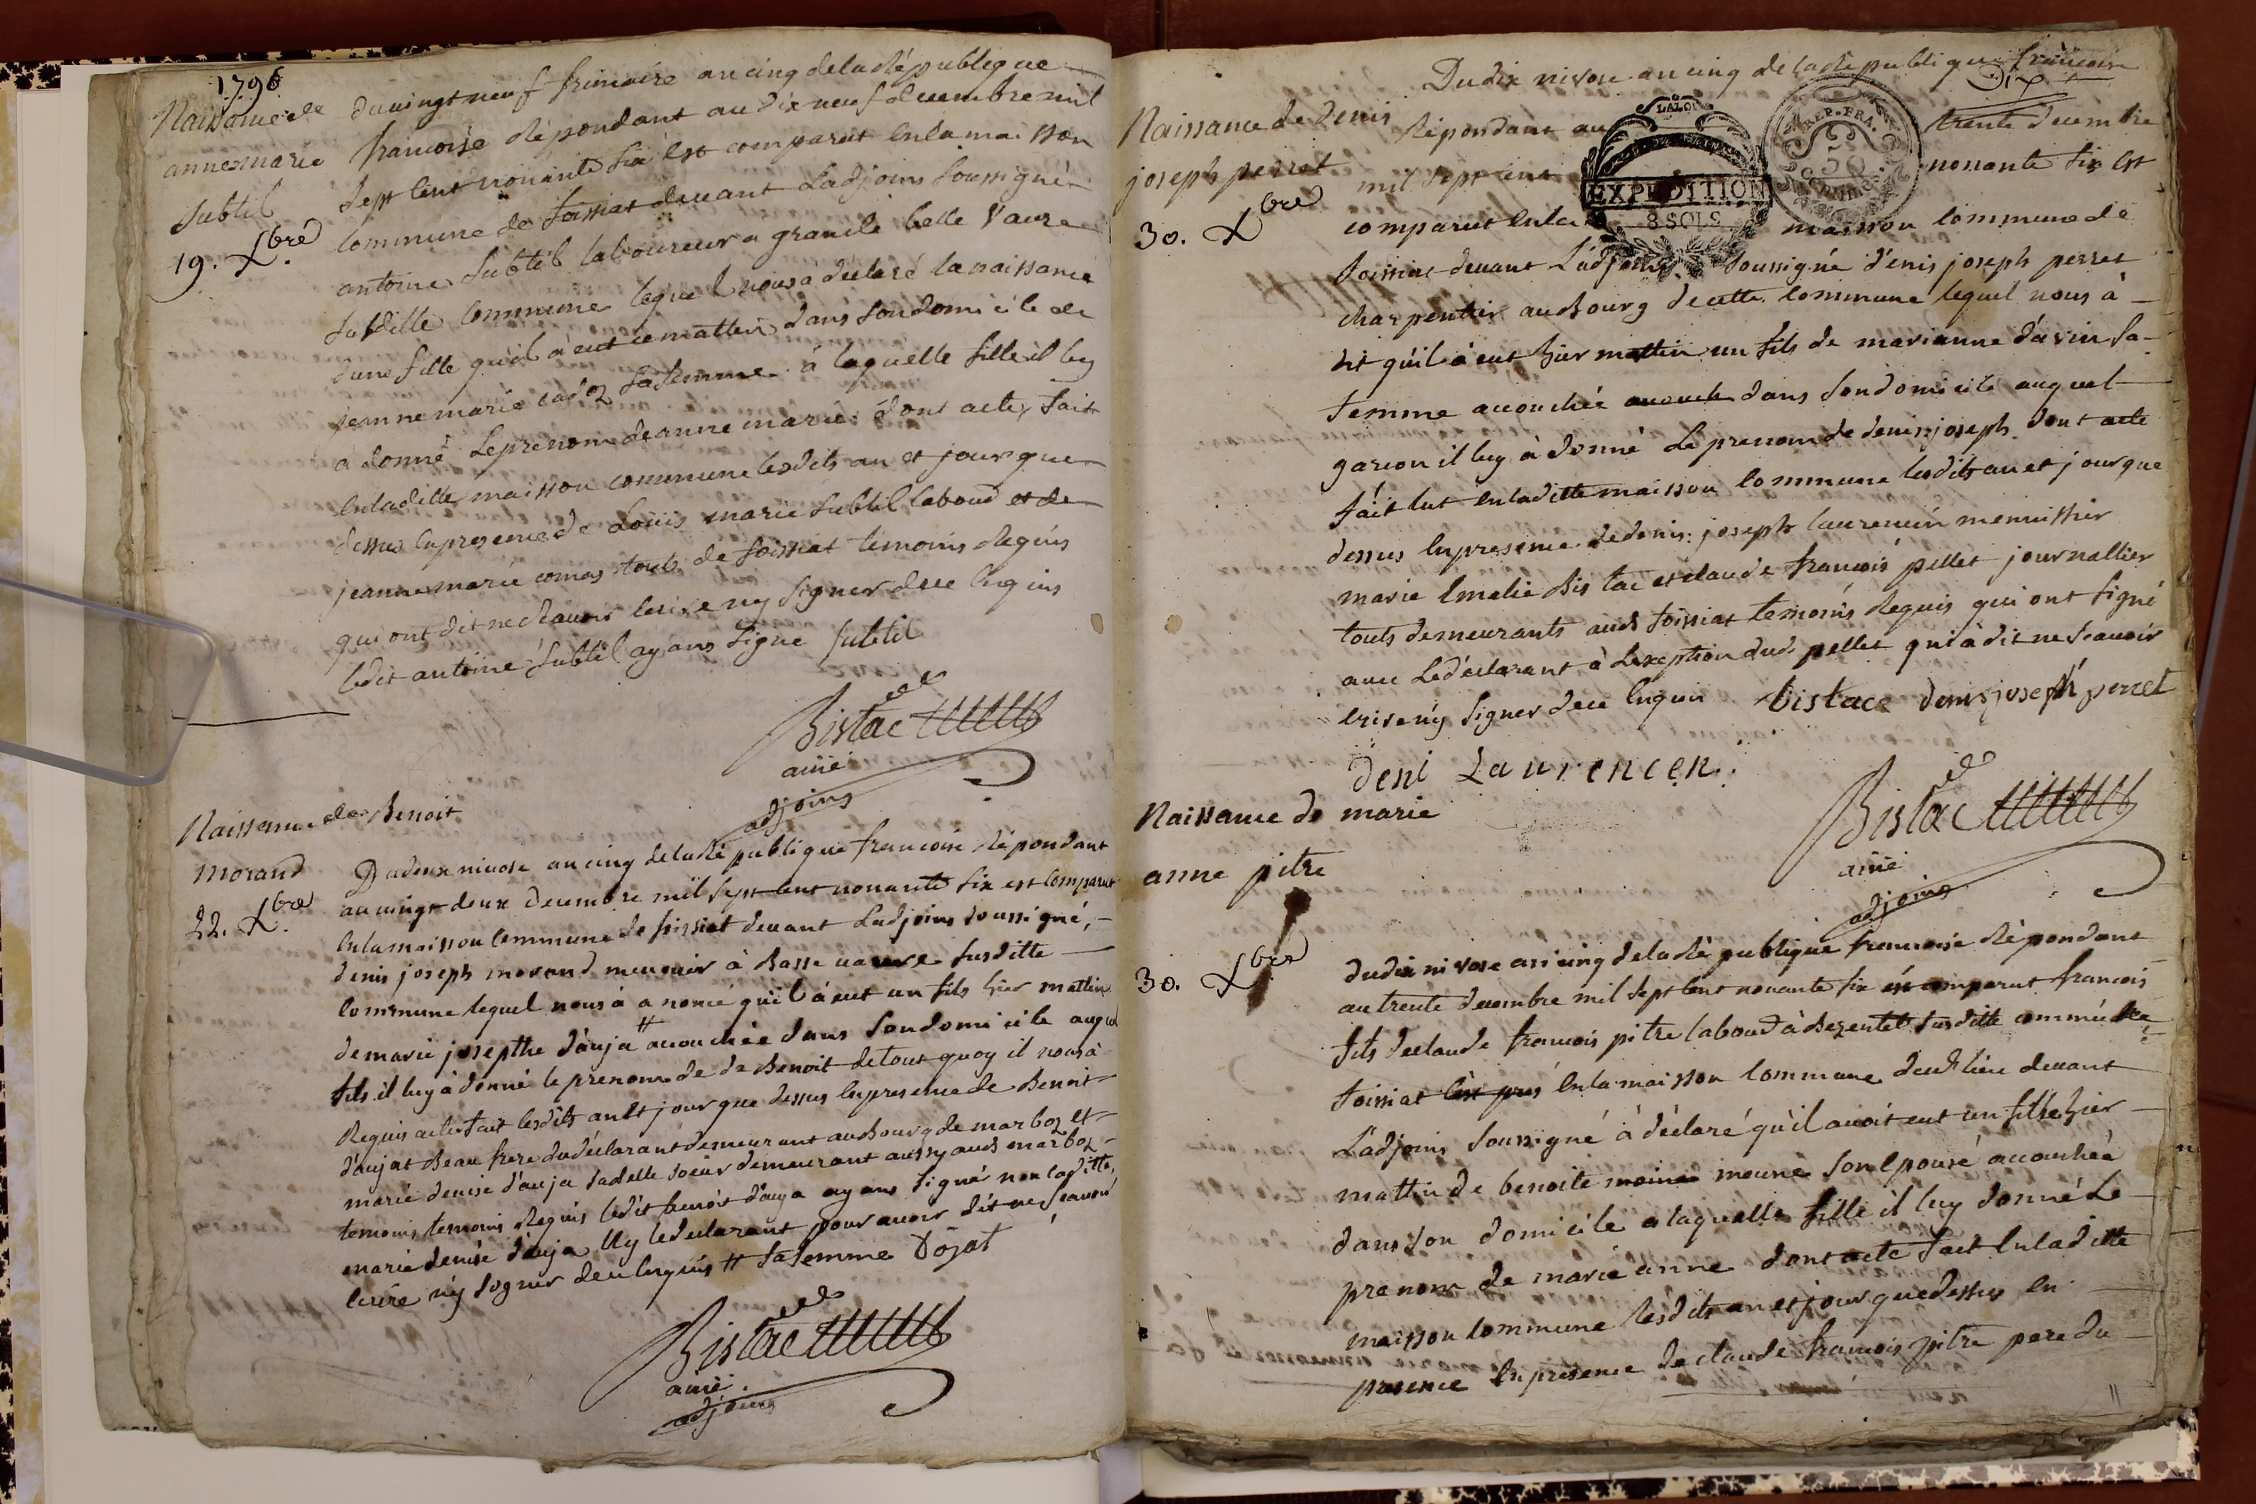 1796
Naissance de
annemarie
Subtil
19. Xbre
du vingt neuf frimaire an cinq de la Republique
francoise Répondant au dix neuf decembre mil
sept cent nonante six est comparut en la maisson
commune de foissiat devant Ladjoins soussigné
antoine Subtil laboureur a grande belle Vavre
susditte commune lequel nous a déclaré la naissance
dune fille qu'il à eut ce mattin dans son domicile de
jeanne marie sa femme à laquelle fille il luy
a donné Le prenom de anne marie dont acte, fait
en laditte maisson commune lesdits an et jour que
dessus en presence de Loüis marie Subtil laboud et de
jeanne marie comas touts de foissiat temoins Requis
qui ont dit ne scavoir ecrire ny signer de ce enquis
ledit antoine Subtil ayans signé Subtil
Bistac
ainé
adjoins
Naissance de Benoit
morand
22. Xbre
Du deux nivose an cinq de la Republique francoise Répondant
au vingt deux decembre mil sept cent nonante six est comparut
en la maisson commune de foissiat devant Ladjoins soussigné,
denis joseph morand meunier à Basse vavre susditte
commune lequel nous à a noncé qu'il à eut un fils hier mattin
de marie josepthe d'auja # accouchée dans son domicile auquel
fils il luy à donné le prenom de de Benoit de tout quoy il nous à
Requis acte fait lesdits an et jour que dessus en presence de Benoit
d'aujat Beau frere du déclarant demeurant au Bourg de marboz et
marie denise d'auja sadelle soeur demeurant aussy aud marboz
temoins temoins Requis ledit benoit d'auja ayans signé non laditte
marie denise d'auja Ny le declarant pour avoir dit ne scavoir
ecrire ny signer de ce enquis # sa femme Dojat
Bistac
ainé
adjoins
Naissance de Denis
joseph perret
30. Xbre
Du dix nivose an cinq de la Republique francoise
Dix
Répondant au trente decembre
mil sept cent nonante six est
comparut en la maisson commune de
LALOI
EXPEDITION
8 SOLS
REP. FRA.
foissiat devant L'adjoins soussigné denis joseph perret
charpentier au Bourg de cette commune lequel nous à
dit qu'il à eut hier mattin un fils de marianne davin sa
femme accouchée dans son domicile auquel
garcon il luy à donné Le prenom de denis joseph dont acte
fait eut en laditte maisson commune lesdits an et jour que
dessus en presence de denis joseph laurencin menuissier
marie Emelie Bistac et claude francois pellet journallier
touts demeurants aud foissiat temoins Requis qui ont signé
avec Le déclarant à L'exeption dud pellet qui à dit ne scavoir
ecrire ny signer de ce enquis bistac denis joseph perret
deni Laurencen
Bistac
ainé
adjoins
Naissance de marie
anne pitre
30. Xbre
du dix nivose an cinq de la Republique francoise Répondant
au trente decembre mil sept cent nonante six est comparut francois
fils de claude francois pitre laboud à Bezentet susditte commune
foissiat en la maisson commune dud lieu devant
L'adjoins soussigné à déclaré qu'il avoit eut un fille hier
mattin de benoite moine meune son epouse accouchée
dans son domicile a laquelle fille il luy donné Le
prenom de marie anne dont acte fait en laditte
maisson commune lesdits an et jour que dessus en
presence en presence de claude francois pitre pere du